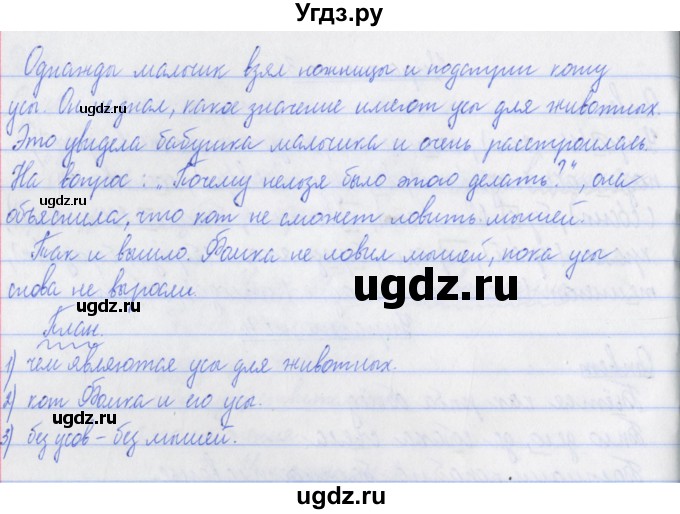 Угдз.ру
Однажды мальчик взял ножницы и подстриг коту
усы. Он не знал, какое значение имеют усы для животных.
ugdz.ru ugdz.ru
Это увидела бабушка мальчика и очень расстроилась.
На вопрос: „Почему нельзя было этого делать?“, она
объяснила, что кот не сможет ловить мышей.
ugdz.ru
Так и вышло. Фомка не ловил мышей, пока усы
снова не выросли.
ugdz.ru
План.
ugdz.ru
1) чем являются усы для животных.
2) кот Фомка и его усы.
3) без усов – без мышей.
ugdz.ru ugdz.ru
ugdz.ru